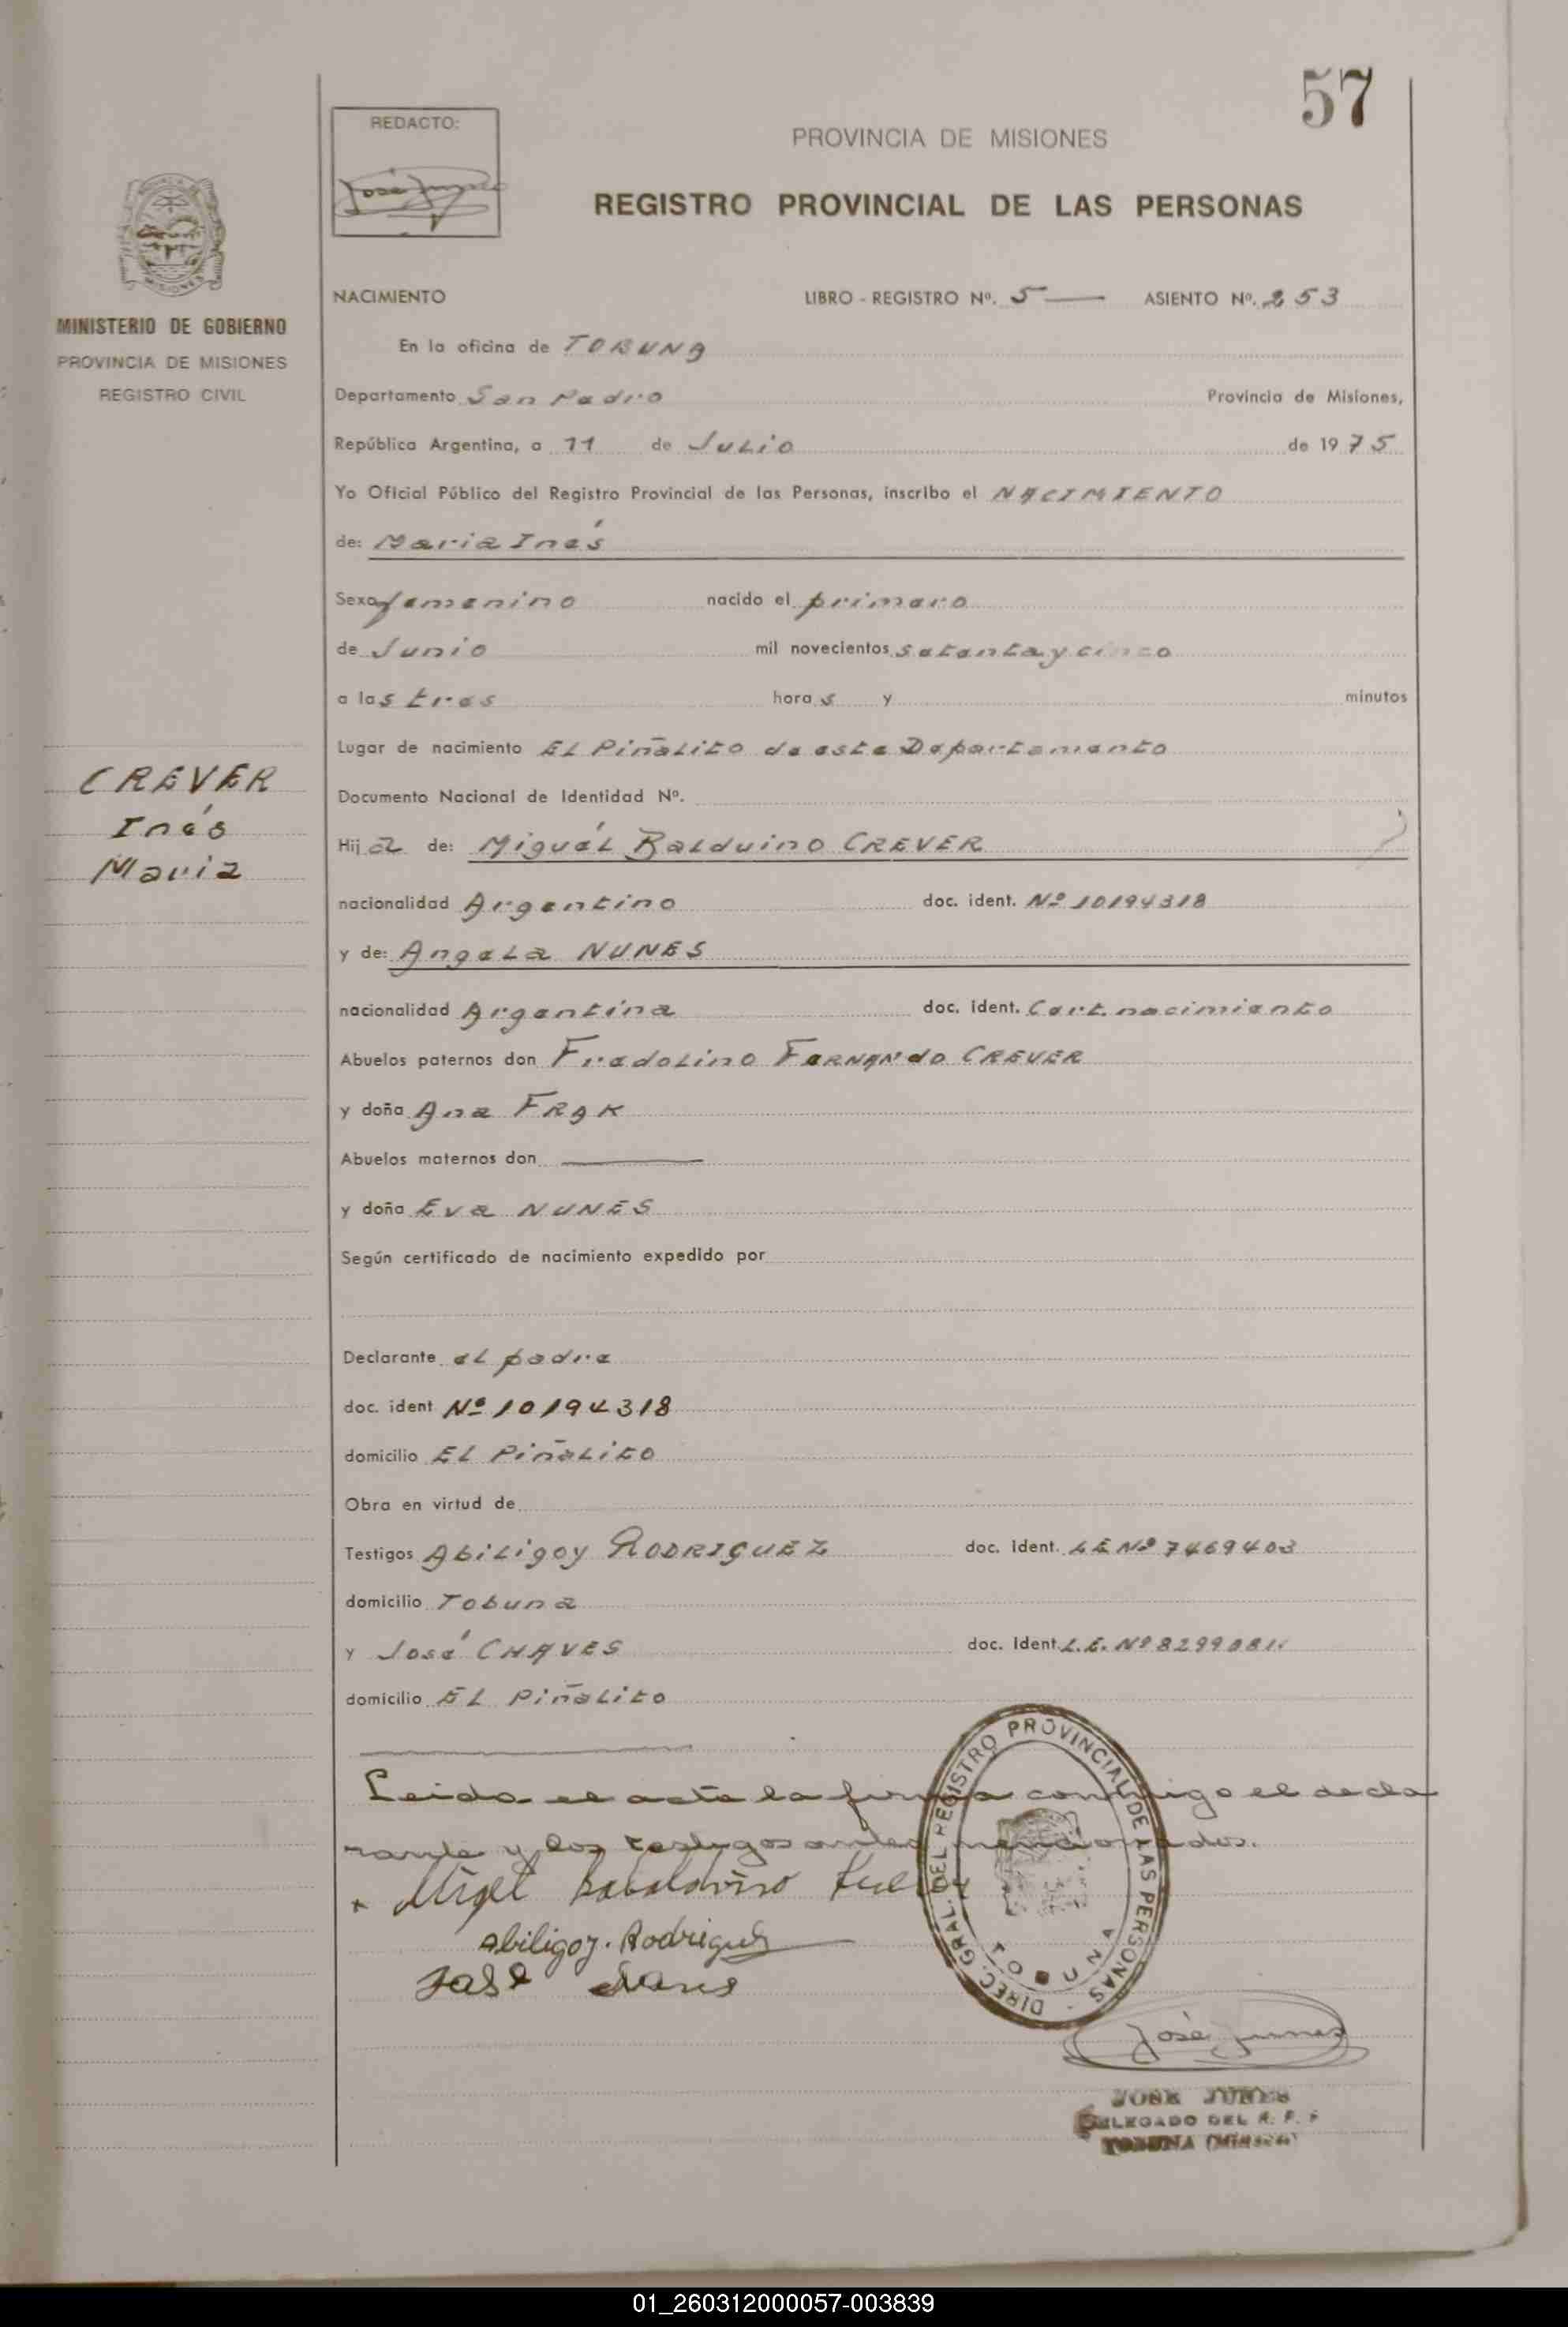 57
REDACTO:
PROVINCIA DE MISIONES
REGISTRO PROVINCIAL DE LAS PERSONAS
MISIONES
MINISTERIO DE GOBIERNO
PROVINCIA DE MISIONES
REGISTRO CIVIL
NACIMIENTO LIBRO - REGISTRO Nº. 5 — ASIENTO Nº. 253
En la oficina de TOBUNA
Departamento San Pedro Provincia de Misiones,
República Argentina, a 11 de Julio de 1975
Yo Oficial Público del Registro Provincial de las Personas, inscribo el NACIMIENTO
de: Maria Inés
Sexo femenino nacido el primero
de Junio mil novecientos setenta y cinco
a las tres horas y minutos
Lugar de nacimiento EL Piñalito de este Departamento
CREVER
Inés
Maria
Documento Nacional de Identidad Nº.
Hija de: Miguél Balduino CREVER
nacionalidad Argentino doc. ident. Nº 10194318
y de: Angela NUNES
nacionalidad Argentina doc. ident. Cert. nacimiento
Abuelos paternos don Fredolino FERNANdo CREVER
y doña Ana FRAK
Abuelos maternos don —
y doña Eva NUNES
Según certificado de nacimiento expedido por
Declarante el padre
doc. ident Nº 10194318
domicilio EL Piñalito
Obra en virtud de
Testigos Abiligoy RODRIGUEZ doc. ident. LE Nº 7469403
domicilio Tobuna
y José CHAVES doc. ident. L.E. Nº 8299081
domicilio EL Piñalito
Leida el acta la firma conmigo el decla
rante y los testigos antes mencionados.
Abiligoy. Rodriguez
José
DIREC. GRAL. DEL REGISTRO PROVINCIAL DE LAS PERSONAS -
TOBUNA
José Junes
JOSE JUNES
DELEGADO DEL R. P. P
TOBUNA (Misiones)
01_260312000057-003839